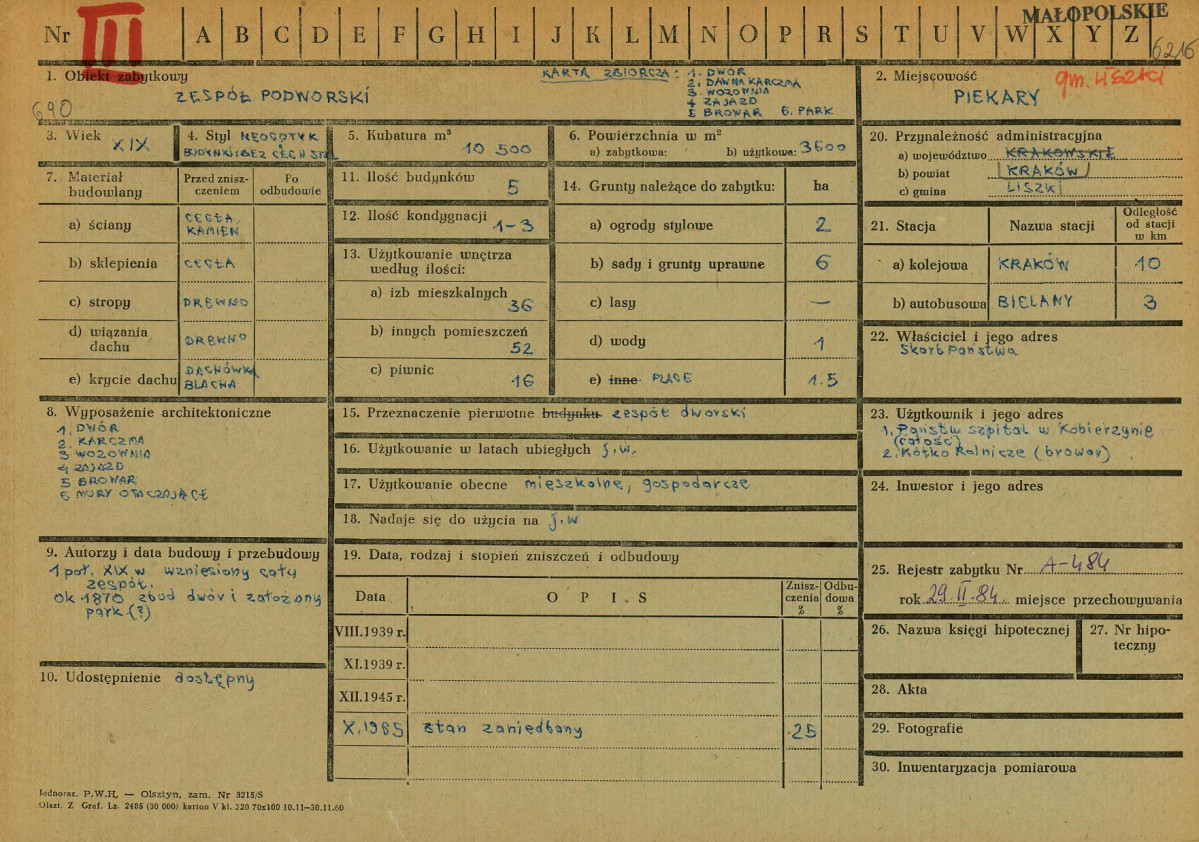 Nr III A B C D E F G H I J K L M N O P R S T U V W X Y Z
MAŁOPOLSKIE
6216
1. Obiekt zabytkowy
690
ZESPÓŁ PODWORSKI
KARTA ZBIORCZA: 1. DWÓR
2. DAWNA KARCZMA
3. WOZOWNIA
4 ZAJAZD
5 BROWAR 6. PARK
2. Miejscowość
gm. LISZKI
PIEKARY
3. Wiek
XIX
4. Styl NEOGOTYK
BUDYNKI: BEZ CECH STYL
5. Kubatura m³
10 500
6. Powierzchnia w m²
a) zabytkowa: b) użytkowa: 3600
7. Materiał budowlany
Przed znisz-
czeniem
Po
odbudowie
a) ściany
CEGŁA,
KAMIEŃ
b) sklepienia CEGŁA
c) stropy DREWNO
d) wiązania
dachu
DREWNO
e) krycie dachu
DACHÓWKA
BLACHA
8. Wyposażenie architektoniczne
1. DWÓR
2. KARCZMA
3 WOZOWNIA
4 ZAJAZD
5 BROWAR
6 MURY OTACZAJĄCE
9. Autorzy i data budowy i przebudowy
1 poł. XIX w wzniesiony cały
zespół.
Ok 1870 zbud dwór i założony
park (?)
10. Udostępnienie dostępny
11. Ilość budynków
5
12. Ilość kondygnacji
1-3
13. Użytkowanie wnętrza
według ilości:
a) izb mieszkalnych
36
b) innych pomieszczeń
52
c) piwnic
16
14. Grunty należące do zabytku: ha
a) ogrody stylowe 2
b) sady i grunty uprawne 6
c) lasy —
d) wody 1
e) inne PLACE 1.5
15. Przeznaczenie pierwotne budynku zespół dworski
16. Użytkowanie w latach ubiegłych j.w.
17. Użytkowanie obecne mieszkalne, gospodarcze
18. Nadaje się do użycia na j.w
19. Data, rodzaj i stopień zniszczeń i odbudowy
Data
O P I S
Znisz-
czenia
%
Odbu-
dowa
%
VIII.1939 r.
XI.1939 r.
XII.1945 r.
X.1965 stan zaniedbany 25
20. Przynależność administracyjna
a) województwo KRAKOWSKIE
b) powiat KRAKÓW
c) gmina LISZKI
21. Stacja
Nazwa stacji
Odległość
od stacji
w km
a) kolejowa KRAKÓW 10
b) autobusowa BIELANY 3
22. Właściciel i jego adres
Skarb Państwa
23. Użytkownik i jego adres
1. Państw szpital w Kobierzynie
(całość)
2. Kółko Rolnicze (browar)
24. Inwestor i jego adres
25. Rejestr zabytku Nr A-484
rok 29.II.84 miejsce przechowywania
26. Nazwa księgi hipotecznej
27. Nr hipo-
teczny
28. Akta
29. Fotografie
30. Inwentaryzacja pomiarowa
Jednoraz. P.W.H. — Olsztyn, zam. Nr 3215/S
Olszt. Z Graf. Lz. 2485 (30 000) karton V kl. 220 70x100 10.11—30.11.60